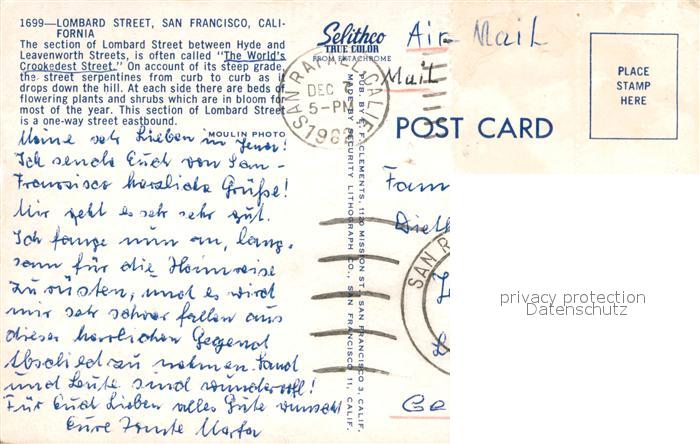 1699—LOMBARD STREET, SAN FRANCISCO, CALI-
FORNIA
The section of Lombard Street between Hyde and
Leavenworth Streets, is often called "The World's
Crookedest Street." On account of its steep grade
the street serpentines from curb to curb as it
drops down the hill. At each side there are beds of
flowering plants and shrubs which are in bloom for
most of the year. This section of Lombard Street
is a one-way street eastbound.
MOULIN PHOTO
Meine sehr Lieben in Jena!
Ich sende Euch von San-
Franzisco herzliche Grüße!
Mir geht es sehr sehr gut.
Ich fange nun an, lang-
sam für die Heimreise
zu rüsten, und es wird
mir sehr schwer fallen aus
dieser herrlichen Gegend
Abschied zu nehmen. Land
und Leute sind wundervoll!
Für Euch Lieben alles Gute wünscht
Eure Tante Marta
Selithco
TRUE COLOR
FROM EKTACHROME
SAN RAFAEL, CALIF.
DEC
5-PM
PUB. BY E. F. CLEMENTS, 1120 MISSION ST., SAN FRANCISCO 3, CALIF.
MADE BY SECURITY LITHOGRAPH CO., SAN FRANCISCO 11, CALIF.
Air Mail
Mail
POST CARD
PLACE
STAMP
HERE
Fam
Dieth
SAN R
Ge
privacy protection
Datenschutz